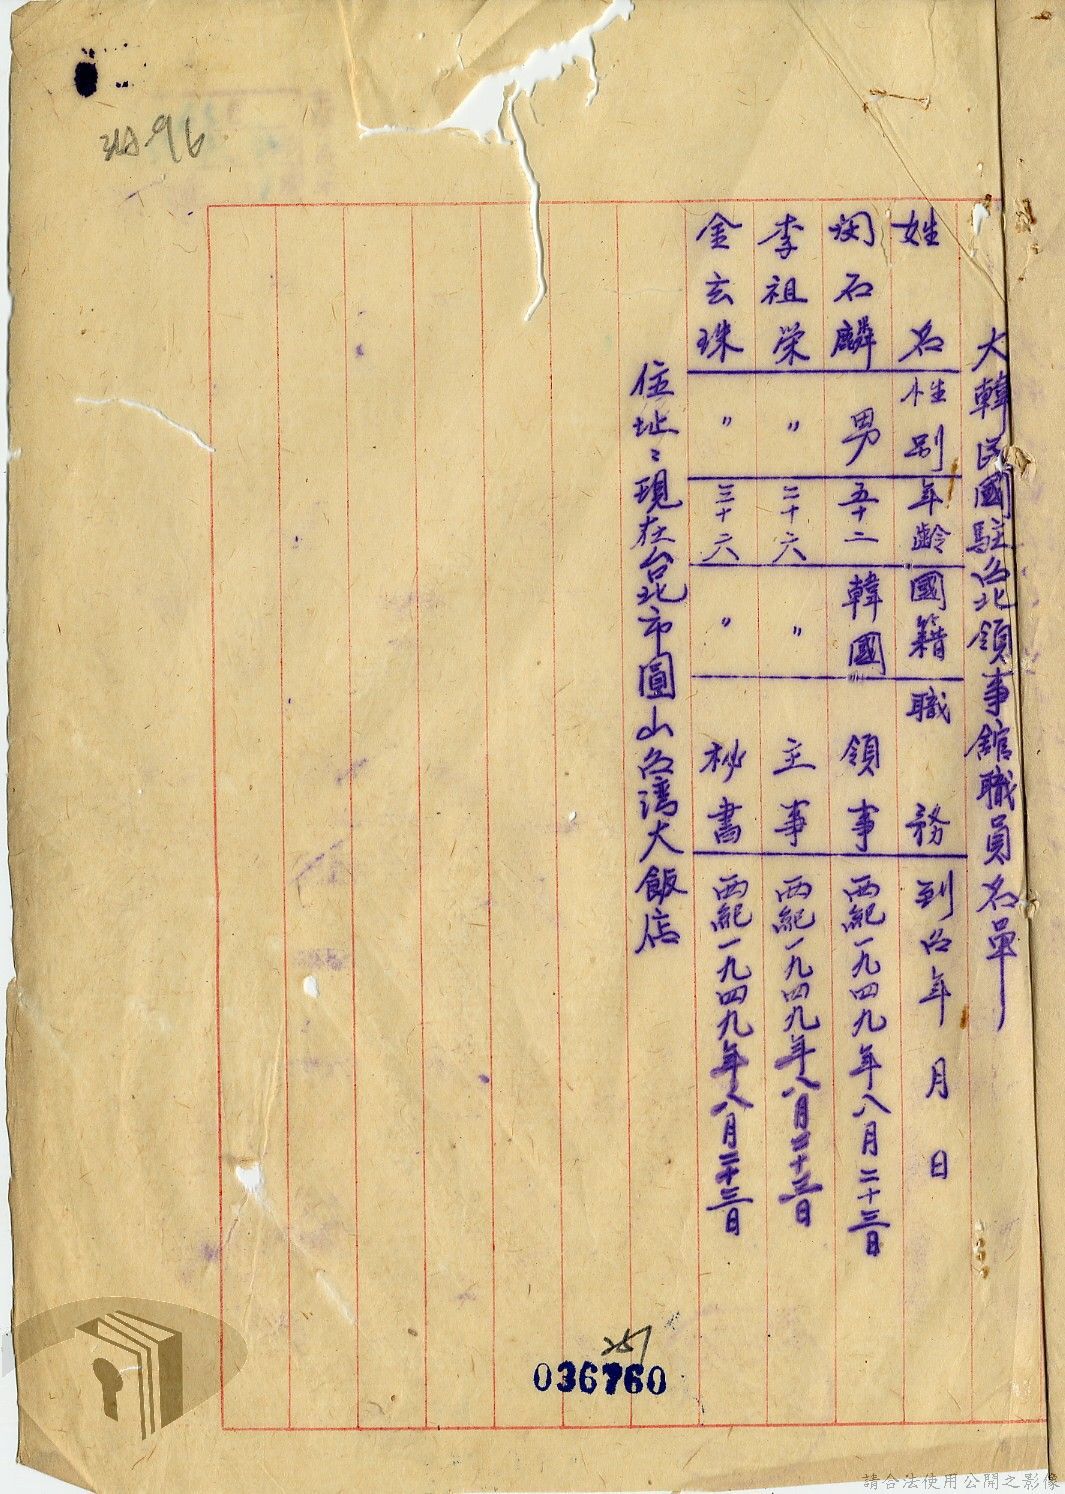 大韓民國駐台北領事館職員名單
姓名 性別 年齡 國籍 職務 到台年月日
閔石麟 男 五十二 韓國 領事 西紀一九四九年八月二十三日
李祖榮 〃 二十六 〃 主事 西紀一九四九年八月二十三日
金玄珠 〃 三十六 〃 秘書 西紀一九四九年八月二十三日
住址:現在台北市圓山台灣大飯店
257
036760
請合法使用公開之影像